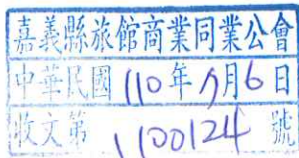 嘉義縣旅館商業同業公會
中華民國110年1月6日
收文第1100124號